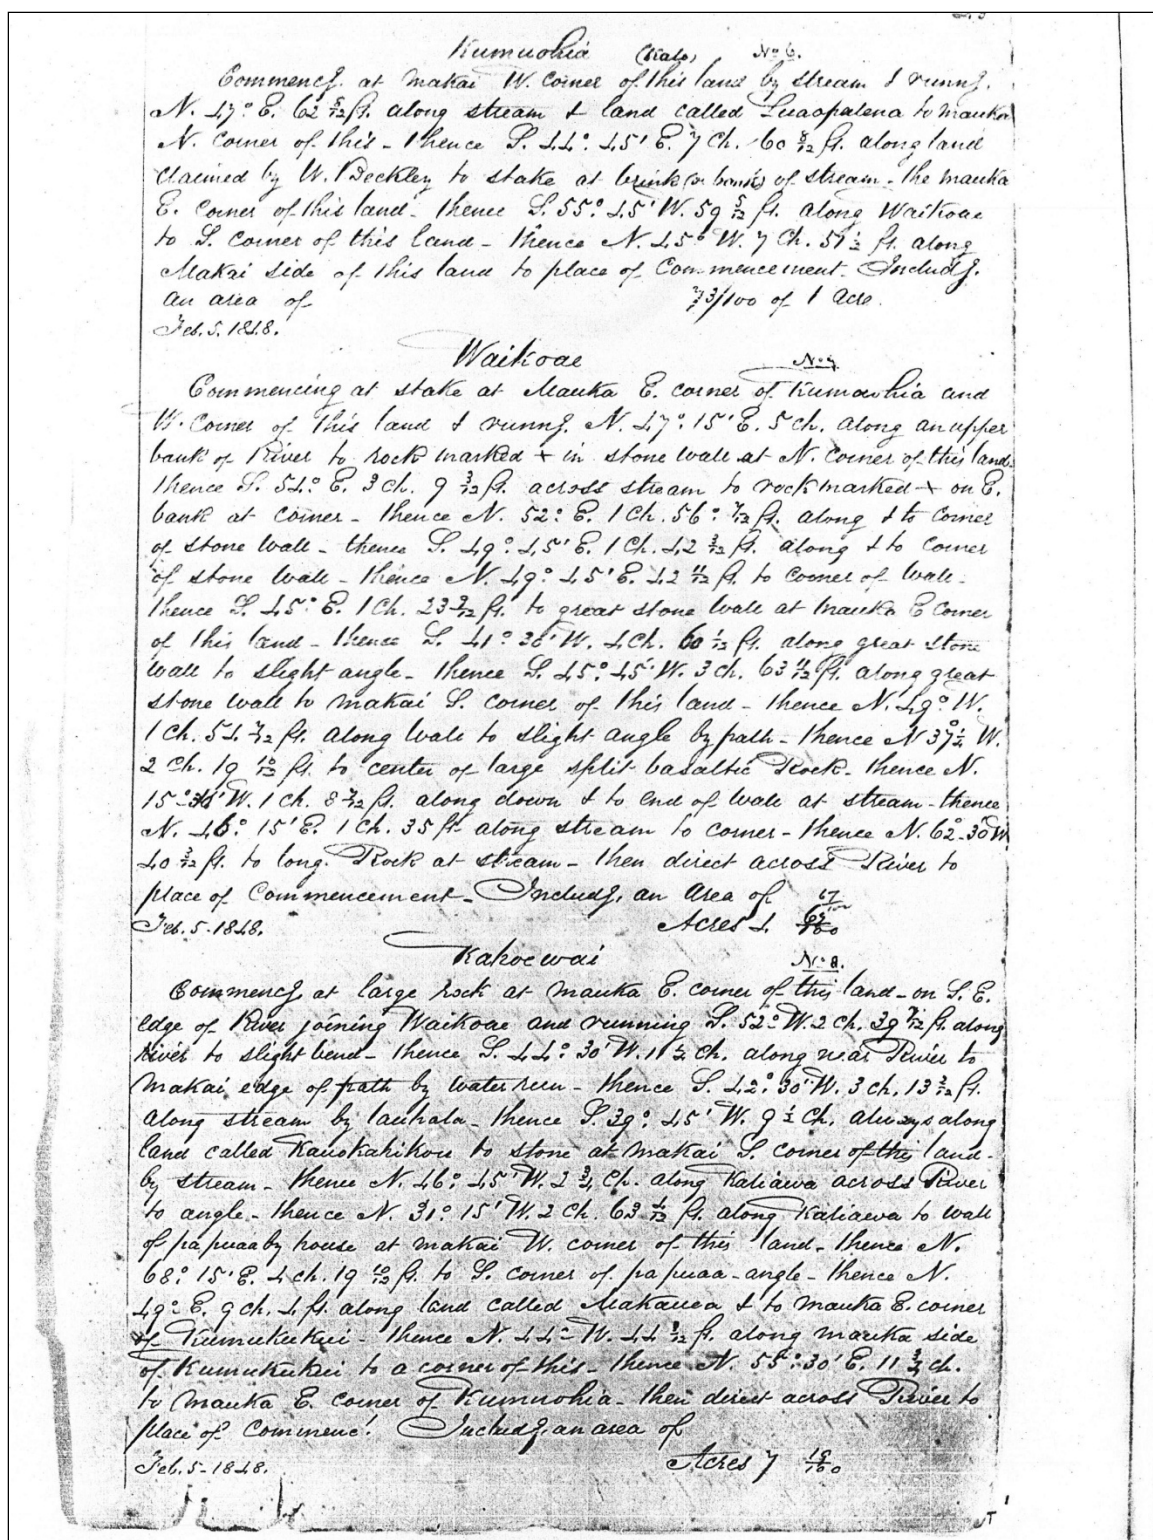 Kumuohia (Kalo) No 6.
Commencg. at makai W. corner of this land by stream & runng.
N. 47° E. 62 5/12 ft. along stream & land called Luaopalena to mauka
N. corner of this - thence S. 44° 45' E. 7 ch. 60 8/12 ft. along land
claimed by W. Beckley to stake at brink (or bank) of stream - the mauka
E. corner of this land - thence S. 55° 45' W. 59 5/12 ft. along Waikoae
to S. corner of this land - thence N. 45° W. 7 Ch. 51 1/2 ft. along
Makai side of this land to place of Commencement. Includg.
an area of 73/100 of 1 Acre.
Feb. 5. 1848.
Waikoae No 7
Commencing at stake at Mauka E. corner of Kumuohia and
W. corner of this land & runng. N. 47° 15' E. 5 ch. along an upper
bank of River to rock marked + in stone wall at N. corner of this land.
thence S. 54° E. 3 ch. 9 3/12 ft. across stream to rock marked + on E.
bank at corner - thence N. 52° E. 1 Ch. 56 7/12 ft. along & to corner
of stone wall - thence S. 49° 45' E. 1 Ch. 42 3/12 ft. along & to corner
of stone wall - thence N. 49° 45' E. 42 11/12 ft. to corner of wall -
thence S. 45° E. 1 Ch. 23 3/12 ft. to great stone wall at mauka E corner
of this land - thence S. 41° 30' W. 4 Ch. 60 1/12 ft. along great stone
wall to slight angle - thence S. 45° 45' W. 3 ch. 63 11/12 ft. along great
stone wall to makai S. corner of this land - thence N. 49° W.
1 Ch. 54 7/12 ft. along wall to slight angle by path - thence N 37 1/2° W.
2 Ch. 19 10/12 ft. to center of large split basaltic Rock - thence N.
15° W. 1 ch. 8 7/12 ft. along down & to end of wall at stream - thence
N. 46° 15' E. 1 Ch. 35 ft. along stream to corner - thence N. 62° 30' W
40 3/12 ft. to long Rock at stream - then direct across River to
place of Commencement - Includg. an area of 67/100
Feb. 5. 1848. Acres 4.
Kahoewai No 8.
Commencg. at large rock at mauka E. corner of this land - on S. E.
edge of River joining Waikoae and running S. 52° W. 2 ch. 39 7/12 ft. along
River to slight bend - thence S. 44° 30' W. 11 1/2 ch. along near River to
makai edge of path by water run - thence S. 42° 30' W. 3 ch. 13 3/12 ft.
along stream by lauhala - thence S. 39° 45' W. 9 1/2 Ch. always along
land called Kauokahikou to stone at makai S. corner of this land -
by stream - thence N. 46° 45' W. 2 3/4 Ch. along Kaliawa across River
to angle - thence N. 31° 15' W. 2 Ch. 63 1/12 ft. along Kaliawa to wall
of papuaa by house at makai W. corner of this land - thence N.
68° 15' E. 4 ch. 19 10/12 ft. to S. corner of papuaa - angle - thence N.
49° E. 9 ch. 4 ft. along land called Makauea & to mauka E. corner
of Kumukukui - thence N. 44° W. 44 8/12 ft. along mauka side
of Kumukukui to a corner of this - thence N. 55° 30' E. 11 3/4 ch.
to mauka E. corner of Kumuohia - then direct across River to
place of Commenct. Includg. an area of
Feb. 5 - 1848. Acres 7 18/100